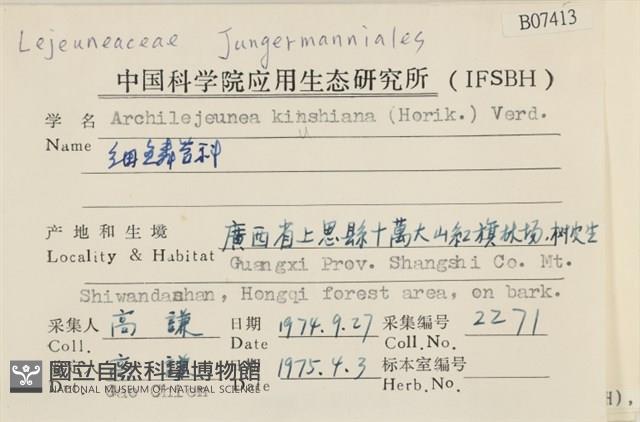 B07413
Lejeuneaceae Jungermanniales
中国科学院应用生态研究所 (IFSBH)
学名 Archilejeunea kihshiana (Horik.) Verd.
Name 细鳞苔科
产地和生境 廣西省上思縣十萬大山紅旗林场.树生
Locality & Habitat Guangxi Prov. Shangshi Co. Mt.
Shiwandashan, Hongqi forest area, on bark.
采集人 高謙 日期 1974.9.27 采集编号 2271
Coll. Date Coll.No.
高謙 日期 1975.4.3 标本室编号
Det. Gao Chien Date Herb.No.
國立自然科學博物館
NATIONAL MUSEUM OF NATURAL SCIENCE
H),